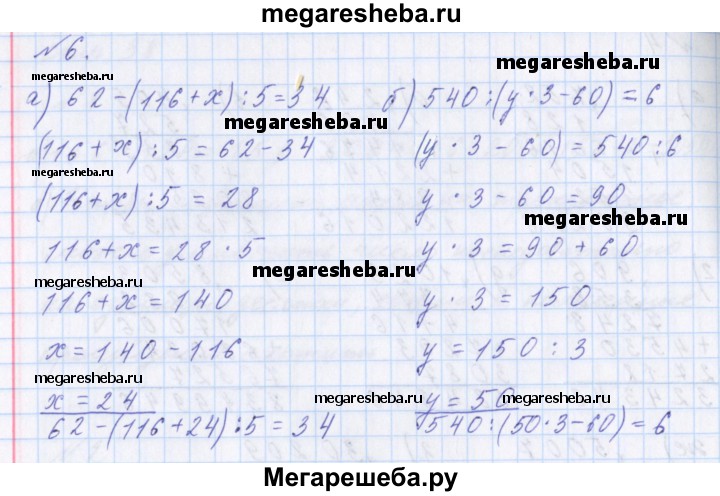 megaresheba.ru
№6.
megaresheba.ru
megaresheba.ru
а) 62-(116+x):5=34
megaresheba.ru
(116+x):5=62-34
(116+x):5=28
116+x=28·5
megaresheba.ru
megaresheba.ru
116+x=140
x=140-116
megaresheba.ru
x=24
62-(116+24):5=34
б) 540:(y·3-60)=6
(y·3-60)=540:6
y·3-60=90
megaresheba.ru
y·3=90+60
y·3=150
y=150:3
y=50
megaresheba.ru
megaresheba.ru
540:(50·3-60)=6
Мегарешеба.ру